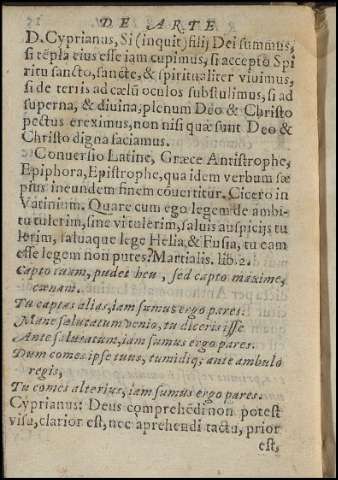 DE ARTE
D. Cyprianus, Si (inquit) filij Dei sumus,
si tẽpla eius esse iam cupimus, si accepto Spi
ritu sancto, sancte, & spiritualiter viuimus,
si de terris ad cælũ oculos substulimus, si ad
superna, & diuina, plenum Deo & Christo
pectus ereximus, non nisi quæ sunt Deo &
Christo digna faciamus.
Conuersio Latine, Græce Antistrophe,
Epiphora, Epistrophe, qua idem verbum sæ
pius in eundem finem cõuertitur. Cicero in
Vatinium. Quare cum ego legem de ambi-
tu tulerim, sine vi tulerim, saluis auspicijs tu
lerim, saluaque lege Helia, & Fusia, tu eam
esse legem non putes? Martialis. lib. 2.
Capto tuam, pudet heu, sed capto maxime,
cænam.
Tu captas alias, iam sumus ergo pares.
Mane salutatum venio, tu diceris isse
Ante salutatum, iam sumus ergo pares.
Dum comes ipse tuus, tumidiq; ante ambulo
regis,
Tu comes alterius, iam sumus ergo pares.
Cyprianus: Deus comprehẽdi non potest
visu, clarior est, nec aprehendi tactu, prior
est,